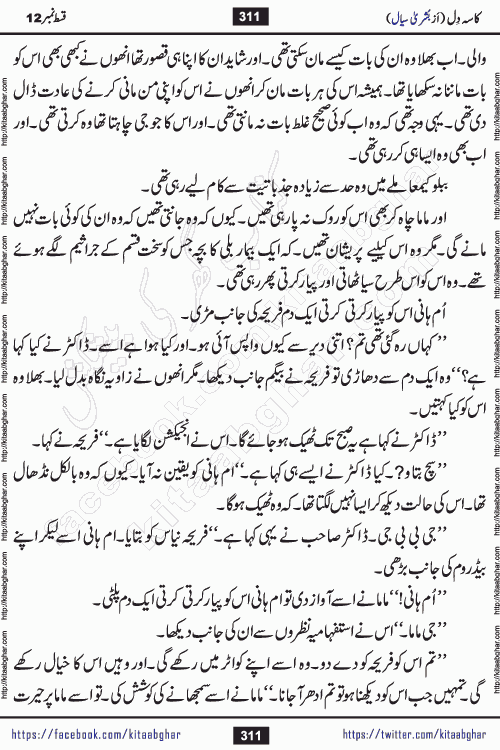 کاسہ دل (از بشریٰ سیال) 311 قسط نمبر 12
والی۔ اب بھلا وہ ان کی بات کیسے مان سکتی تھی۔ اور شاید ان کا اپنا ہی قصور تھا انھوں نے کبھی بھی اس کو
بات ماننا نہ سکھایا تھا۔ ہمیشہ اس کی ہر بات مان کر انھوں نے اس کو اپنی من مانی کرنے کی عادت ڈال
دی تھی۔ یہی وجہ تھی کہ وہ اب کوئی صحیح غلط بات نہ مانتی تھی۔ اور اس کا جو جی چاہتا تھا وہ کرتی تھی۔ اور
اب بھی وہ ایسا ہی کر رہی تھی۔
ببلو کیمعاملے میں وہ حد سے زیادہ جذباتیت سے کام لے رہی تھی۔
اور ماما چاہ کر بھی اس کو روک نہ پا رہی تھیں۔ کیوں کہ وہ جانتی تھیں کہ وہ ان کی کوئی بات نہیں
مانے گی۔ مگر وہ اس کیلیے پریشان تھیں۔ کہ ایک بیمار بلی کا بچہ جس کو سخت قسم کے جراثیم لگے ہوئے
تھے۔ وہ اس کو اس طرح سے اٹھاتی اور پیار کرتی پھر رہی تھی۔
اُم ہانی اس کو پیار کرتی کرتی ایک دم فریحہ کی جانب مڑی۔
’’کہاں رہ گئی تھی تم؟ اتنی دیر سے کیوں واپس آئی ہو۔ اور کیا ہوا ہے اسے۔ ڈاکٹر نے کیا کہا
ہے؟‘‘ وہ ایک دم سے دھاڑی تو فریحہ نے بیگم جانب دیکھا۔ مگر انھوں نے زاویہ نگاہ بدل لیا۔ بھلا وہ
اس کو کیا کہتیں۔
’’ڈاکٹر نے کہا ہے یہ صبح تک ٹھیک ہو جائے گا۔ اس نے انجیکشن لگایا ہے۔‘‘ فریحہ نے کہا۔
’’سچ بتاو?۔ کیا ڈاکٹر نے ایسے ہی کہا ہے۔‘‘ ام ہانی کو یقین نہ آیا۔ کیوں کہ وہ بالکل نڈھال
تھا۔ اس کی حالت دیکھ کر ایسا نہیں لگتا تھا۔ کہ وہ ٹھیک ہو گا۔
’’جی بی بی جی۔ ڈاکٹر صاحب نے یہی کہا ہے۔‘‘ فریحہ نیاس کو بتایا۔ ام ہانی اسے لیکر اپنے
بیڈ روم کی جانب بڑھی۔
’’اُم ہانی!‘‘ ماما نے اسے آواز دی تو ام ہانی اس کو پیار کرتی کرتی ایک دم پلٹی۔
’’جی ماما۔‘‘ اس نے استفہامیہ نظروں سے ان کی جانب دیکھا۔
’’تم اس کو فریحہ کو دے دو۔ وہ اسے اپنے کواٹر میں رکھے گی۔ اور وہیں اس کا خیال رکھے
گی۔ تمہیں جب اس کو دیکھنا ہو تو تم ادھر آ جانا۔‘‘ ماما نے اسے سمجھانے کی کوشش کی۔ تو اسے ماما پر حیرت
https://facebook.com/kitaabghar 311 https://twitter.com/kitaabghar
http://kitaabghar.com